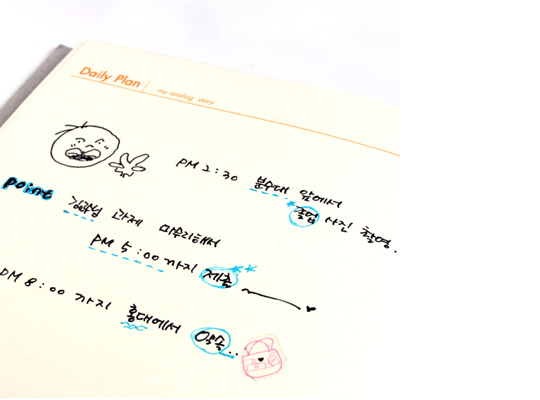 Daily Plan
my analog story
PM 2:30 분수대 앞에서
졸업 사진 촬영.
point
과제 마무리해서
PM 5:00 까지 제출
PM 8:00 까지 홍대에서 약속..